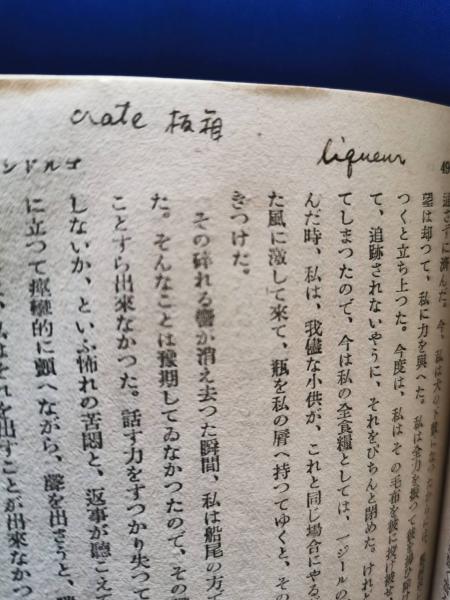 crate 板箱
liqueur
49
ンドルゴ
望は却つて、私に力を與へた。私は全力を振つて彼を
つくと立ち上つた。今度は、私はその毛布を彼に投げ被せ
て、追跡されないやうに、それをぴちんと閉めた。けれど
てしまつたので、今は私の全食糧としては、一ジールの
んだ時、私は、我儘な小供が、これと同じ場合にやる
た風に激して來て、瓶を私の脣へ持つてゆくと、その
きつけた。
その碎れる響が消え去つた瞬間、私は船尾の方で
た。そんなことは豫期してゐなかつたので、その
ことすら出來なかつた。話す力をすつかり失つて
しないか、といふ怖れの苦悶と、返事が聽こえて
に立つて痙攣的に顫へながら、聲を出さうと、
私はそれを出すことが出來なかつ